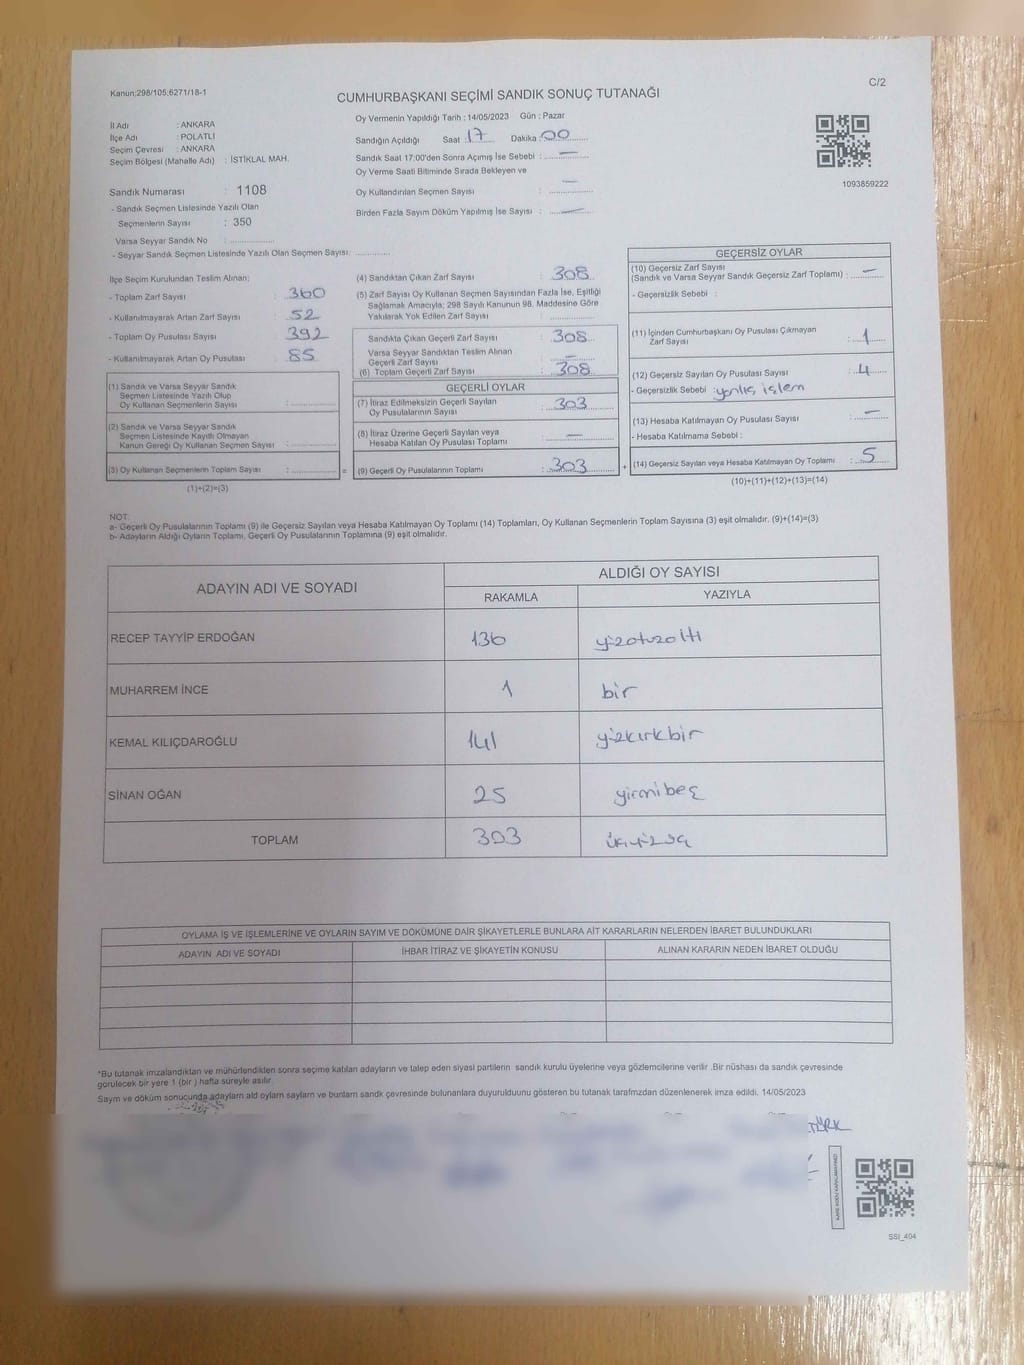 Kanun:298/105,6271/18-1
C/2
CUMHURBAŞKANI SEÇİMİ SANDIK SONUÇ TUTANAĞI
İl Adı : ANKARA
İlçe Adı : POLATLI
Seçim Çevresi : ANKARA
Seçim Bölgesi (Mahalle Adı) : İSTİKLAL MAH.
Sandık Numarası : 1108
- Sandık Seçmen Listesinde Yazılı Olan
Seçmenlerin Sayısı : 350
Varsa Seyyar Sandık No : ................
- Seyyar Sandık Seçmen Listesinde Yazılı Olan Seçmen Sayısı: ............
Oy Vermenin Yapıldığı Tarih : 14/05/2023 Gün : Pazar
Sandığın Açıldığı Saat : 17 Dakika : 00
Sandık Saat 17:00'den Sonra Açımış İse Sebebi : —
Oy Verme Saati Bitiminde Sırada Bekleyen ve
Oy Kullandırılan Seçmen Sayısı : —
Birden Fazla Sayım Döküm Yapılmış İse Sayısı : —
1093859222
İlçe Seçim Kurulundan Teslim Alınan:
- Toplam Zarf Sayısı : 360
- Kullanılmayarak Artan Zarf Sayısı : 52
- Toplam Oy Pusulası Sayısı : 392
- Kullanılmayarak Artan Oy Pusulası : 85
(1) Sandık ve Varsa Seyyar Sandık
Seçmen Listesinde Yazılı Olup
Oy Kullanan Seçmenlerin Sayısı :
(2) Sandık ve Varsa Seyyar Sandık
Seçmen Listesinde Kayıtlı Olmayan
Kanun Gereği Oy Kullanan Seçmen Sayısı :
(3) Oy Kullanan Seçmenlerin Toplam Sayısı : =
(1)+(2)=(3)
(4) Sandıktan Çıkan Zarf Sayısı : 308
(5) Zarf Sayısı Oy Kullanan Seçmen Sayısından Fazla İse, Eşitliği
Sağlamak Amacıyla; 298 Sayılı Kanunun 98. Maddesine Göre
Yakılarak Yok Edilen Zarf Sayısı :
Sandıkta Çıkan Geçerli Zarf Sayısı : 308
Varsa Seyyar Sandıktan Teslim Alınan
Geçerli Zarf Sayısı : —
(6) Toplam Geçerli Zarf Sayısı : 308
GEÇERLİ OYLAR
(7) İtiraz Edilmeksizin Geçerli Sayılan
Oy Pusulalarının Sayısı : 303
(8) İtiraz Üzerine Geçerli Sayılan veya
Hesaba Katılan Oy Pusulası Toplamı : —
(9) Geçerli Oy Pusulalarının Toplamı : 303 +
GEÇERSİZ OYLAR
(10) Geçersiz Zarf Sayısı
(Sandık ve Varsa Seyyar Sandık Geçersiz Zarf Toplamı) : —
- Geçersizlik Sebebi :
(11) İçinden Cumhurbaşkanı Oy Pusulası Çıkmayan
Zarf Sayısı : 1
(12) Geçersiz Sayılan Oy Pusulası Sayısı : 4
- Geçersizlik Sebebi : yanlış işlem
(13) Hesaba Katılmayan Oy Pusulası Sayısı : —
- Hesaba Katılmama Sebebi :
(14) Geçersiz Sayılan veya Hesaba Katılmayan Oy Toplamı : 5
(10)+(11)+(12)+(13)=(14)
NOT:
a- Geçerli Oy Pusulalarının Toplamı (9) ile Geçersiz Sayılan veya Hesaba Katılmayan Oy Toplamı (14) Toplamları, Oy Kullanan Seçmenlerin Toplam Sayısına (3) eşit olmalıdır. (9)+(14)=(3)
b- Adayların Aldığı Oyların Toplamı, Geçerli Oy Pusulalarının Toplamına (9) eşit olmalıdır.
ADAYIN ADI VE SOYADI ALDIĞI OY SAYISI
RAKAMLA YAZIYLA
RECEP TAYYİP ERDOĞAN 136 yüzotuzaltı
MUHARREM İNCE 1 bir
KEMAL KILIÇDAROĞLU 141 yüzkırkbir
SİNAN OĞAN 25 yirmibeş
TOPLAM 303 üçyüzüç
OYLAMA İŞ VE İŞLEMLERİNE VE OYLARIN SAYIM VE DÖKÜMÜNE DAİR ŞİKAYETLERLE BUNLARA AİT KARARLARIN NELERDEN İBARET BULUNDUKLARI
ADAYIN ADI VE SOYADI İHBAR İTİRAZ VE ŞİKAYETİN KONUSU ALINAN KARARIN NEDEN İBARET OLDUĞU
*Bu tutanak imzalandıktan ve mühürlendikten sonra seçime katılan adayların ve talep eden siyasi partilerin sandık kurulu üyelerine veya gözlemcilerine verilir. Bir nüshası da sandık çevresinde
görülecek bir yere 1 (bir ) hafta süreyle asılır.
Sayım ve döküm sonucunda adayların ald oyların sayları ve bunların sandk çevresinde bulunanlara duyurulduunu gösteren bu tutanak tarafımzdan düzenlenerek imza edildi. 14/05/2023
SSI_404